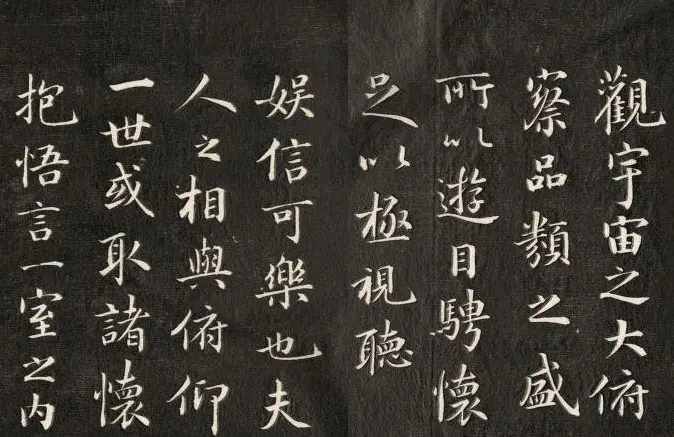 觀宇宙之大俯
察品類之盛
所以遊目騁懷
足以極視聽
娱信可樂也夫
人之相與俯仰
一世或取諸懷
抱悟言一室之内